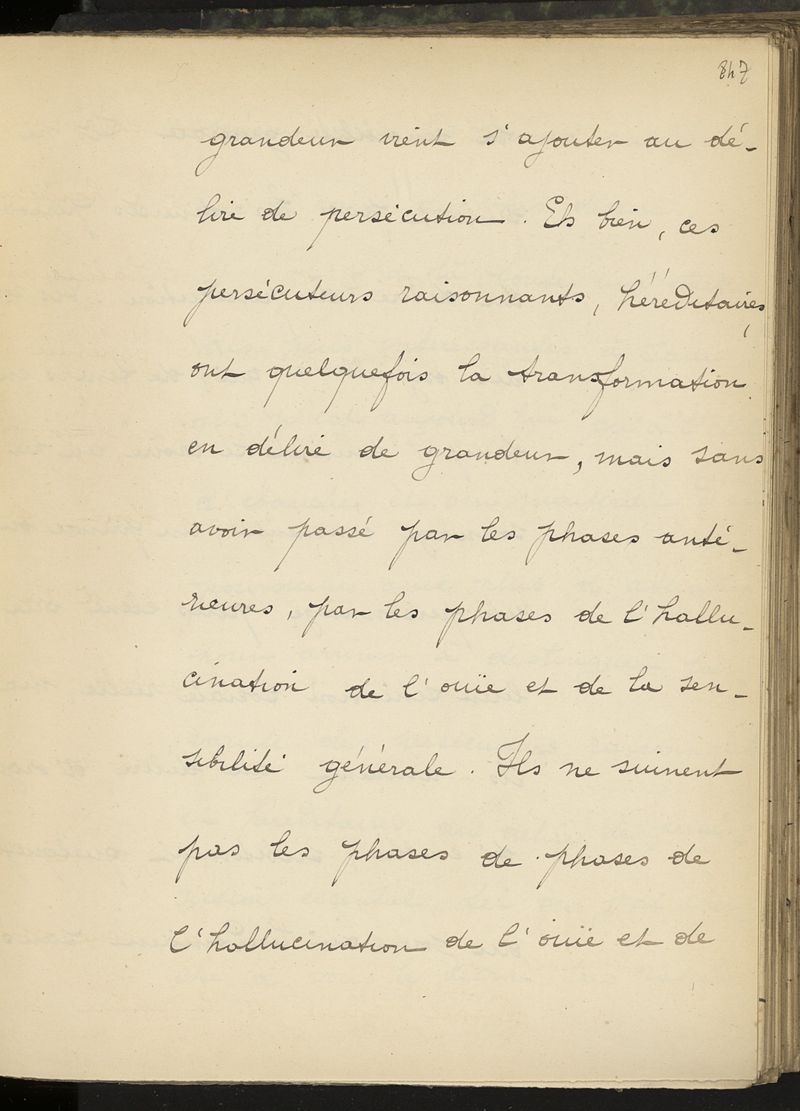 847
grandeur vient s'ajouter au dé-
lire de persécution. Eh bien, ces
persécuteurs raisonnants, héréditaires,
ont quelquefois la transformation
en délire de grandeur, mais sans
avoir passé par les phases anté-
rieures, par les phases de l'hallu-
cination de l'ouïe et de la sen-
sibilité générale. Ils ne suivent
pas les phases de phases de
l'hallucination de l'ouïe et de